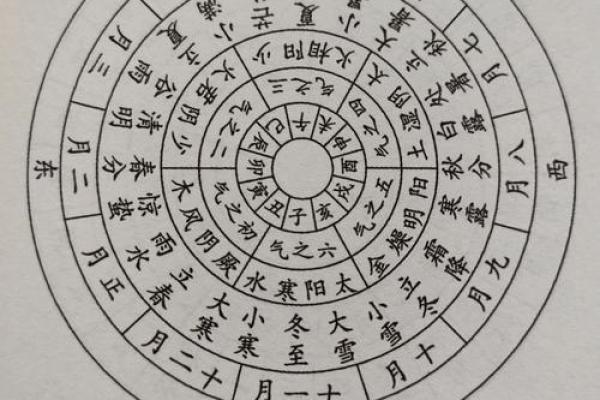 子
丑
寅
卯
辰
巳
午
未
申
酉
戌
亥
初之气
二之气
三之气
四之气
五之气
六之气
厥阴风木
少阴君火
少阳相火
太阴湿土
阳明燥金
太阳寒水
立春
雨水
惊蛰
春分
清明
谷雨
立夏
小满
芒
夏
小
大暑
立秋
处暑
白露
秋分
寒露
霜降
立冬
小雪
大雪
冬至
小寒
大寒
正月
二月
三月
七月
八月
九月
十月
十一月
十二月
东
西